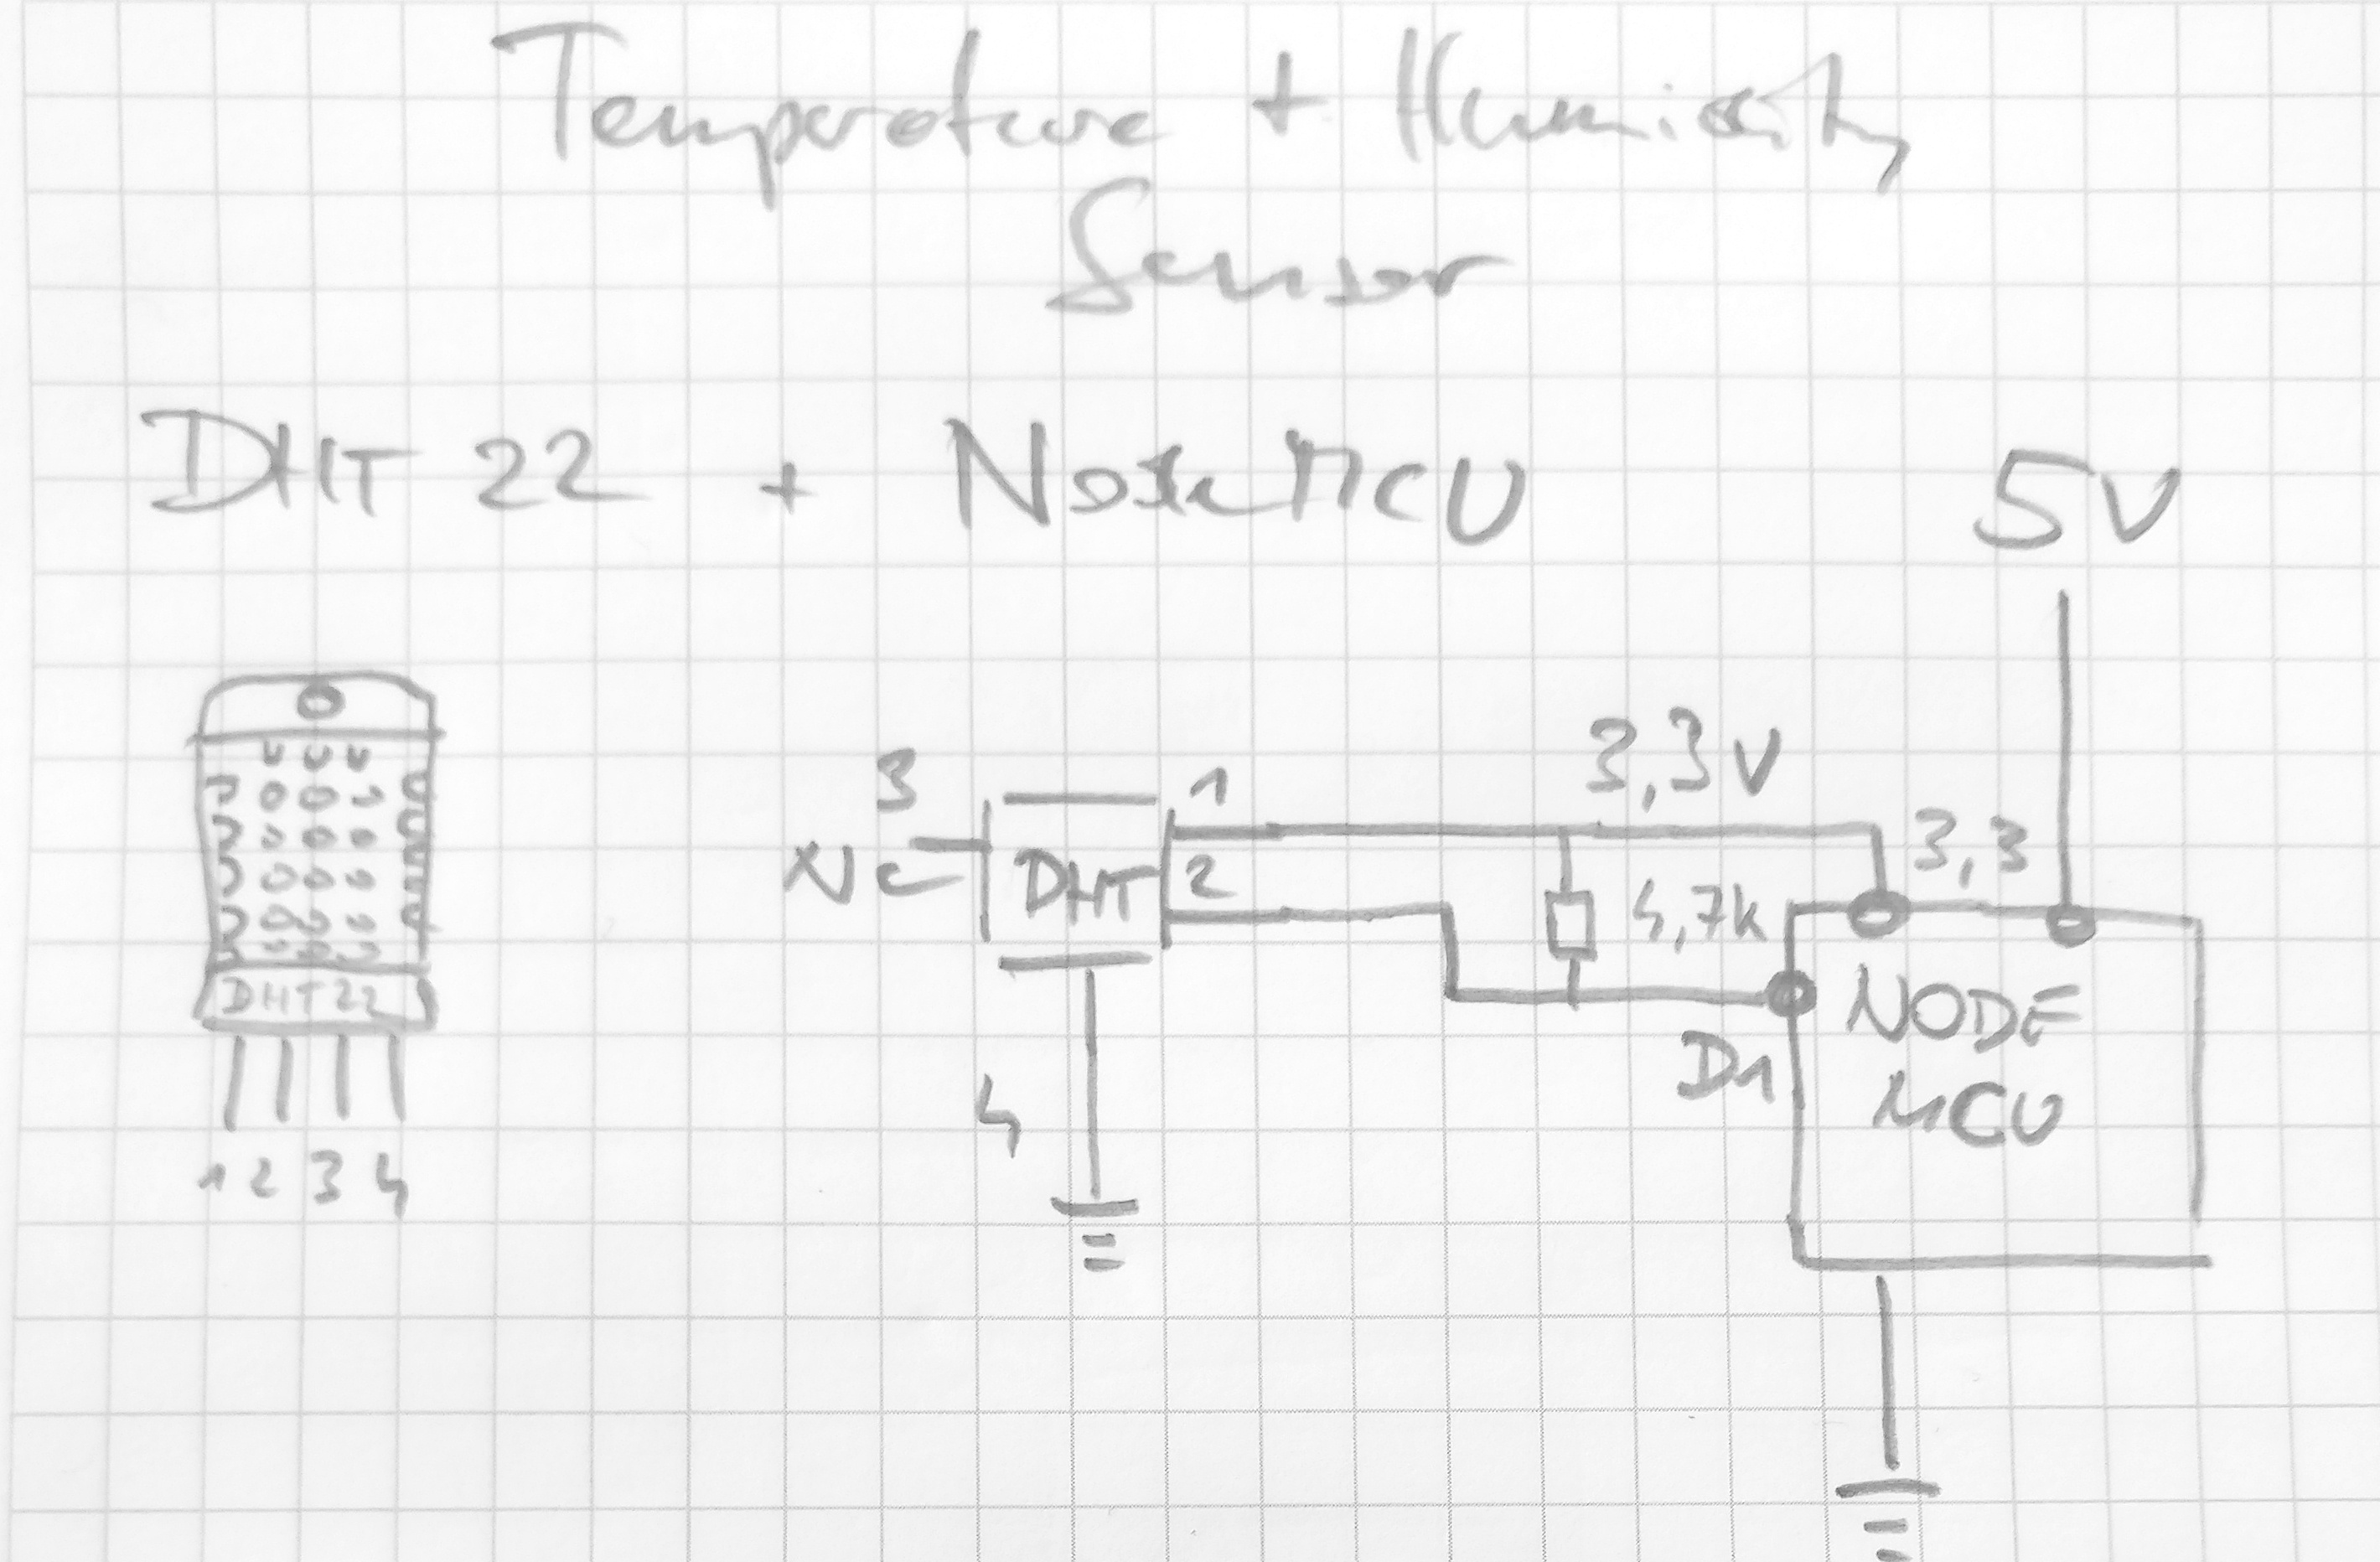 Temperature + Humidity
Sensor
DHT 22 + NodeMCU
5V
DHT22
1 2 3 4
3
NC
DHT
1
2
4
3,3V
4,7k
3,3
D1
NODE
MCU